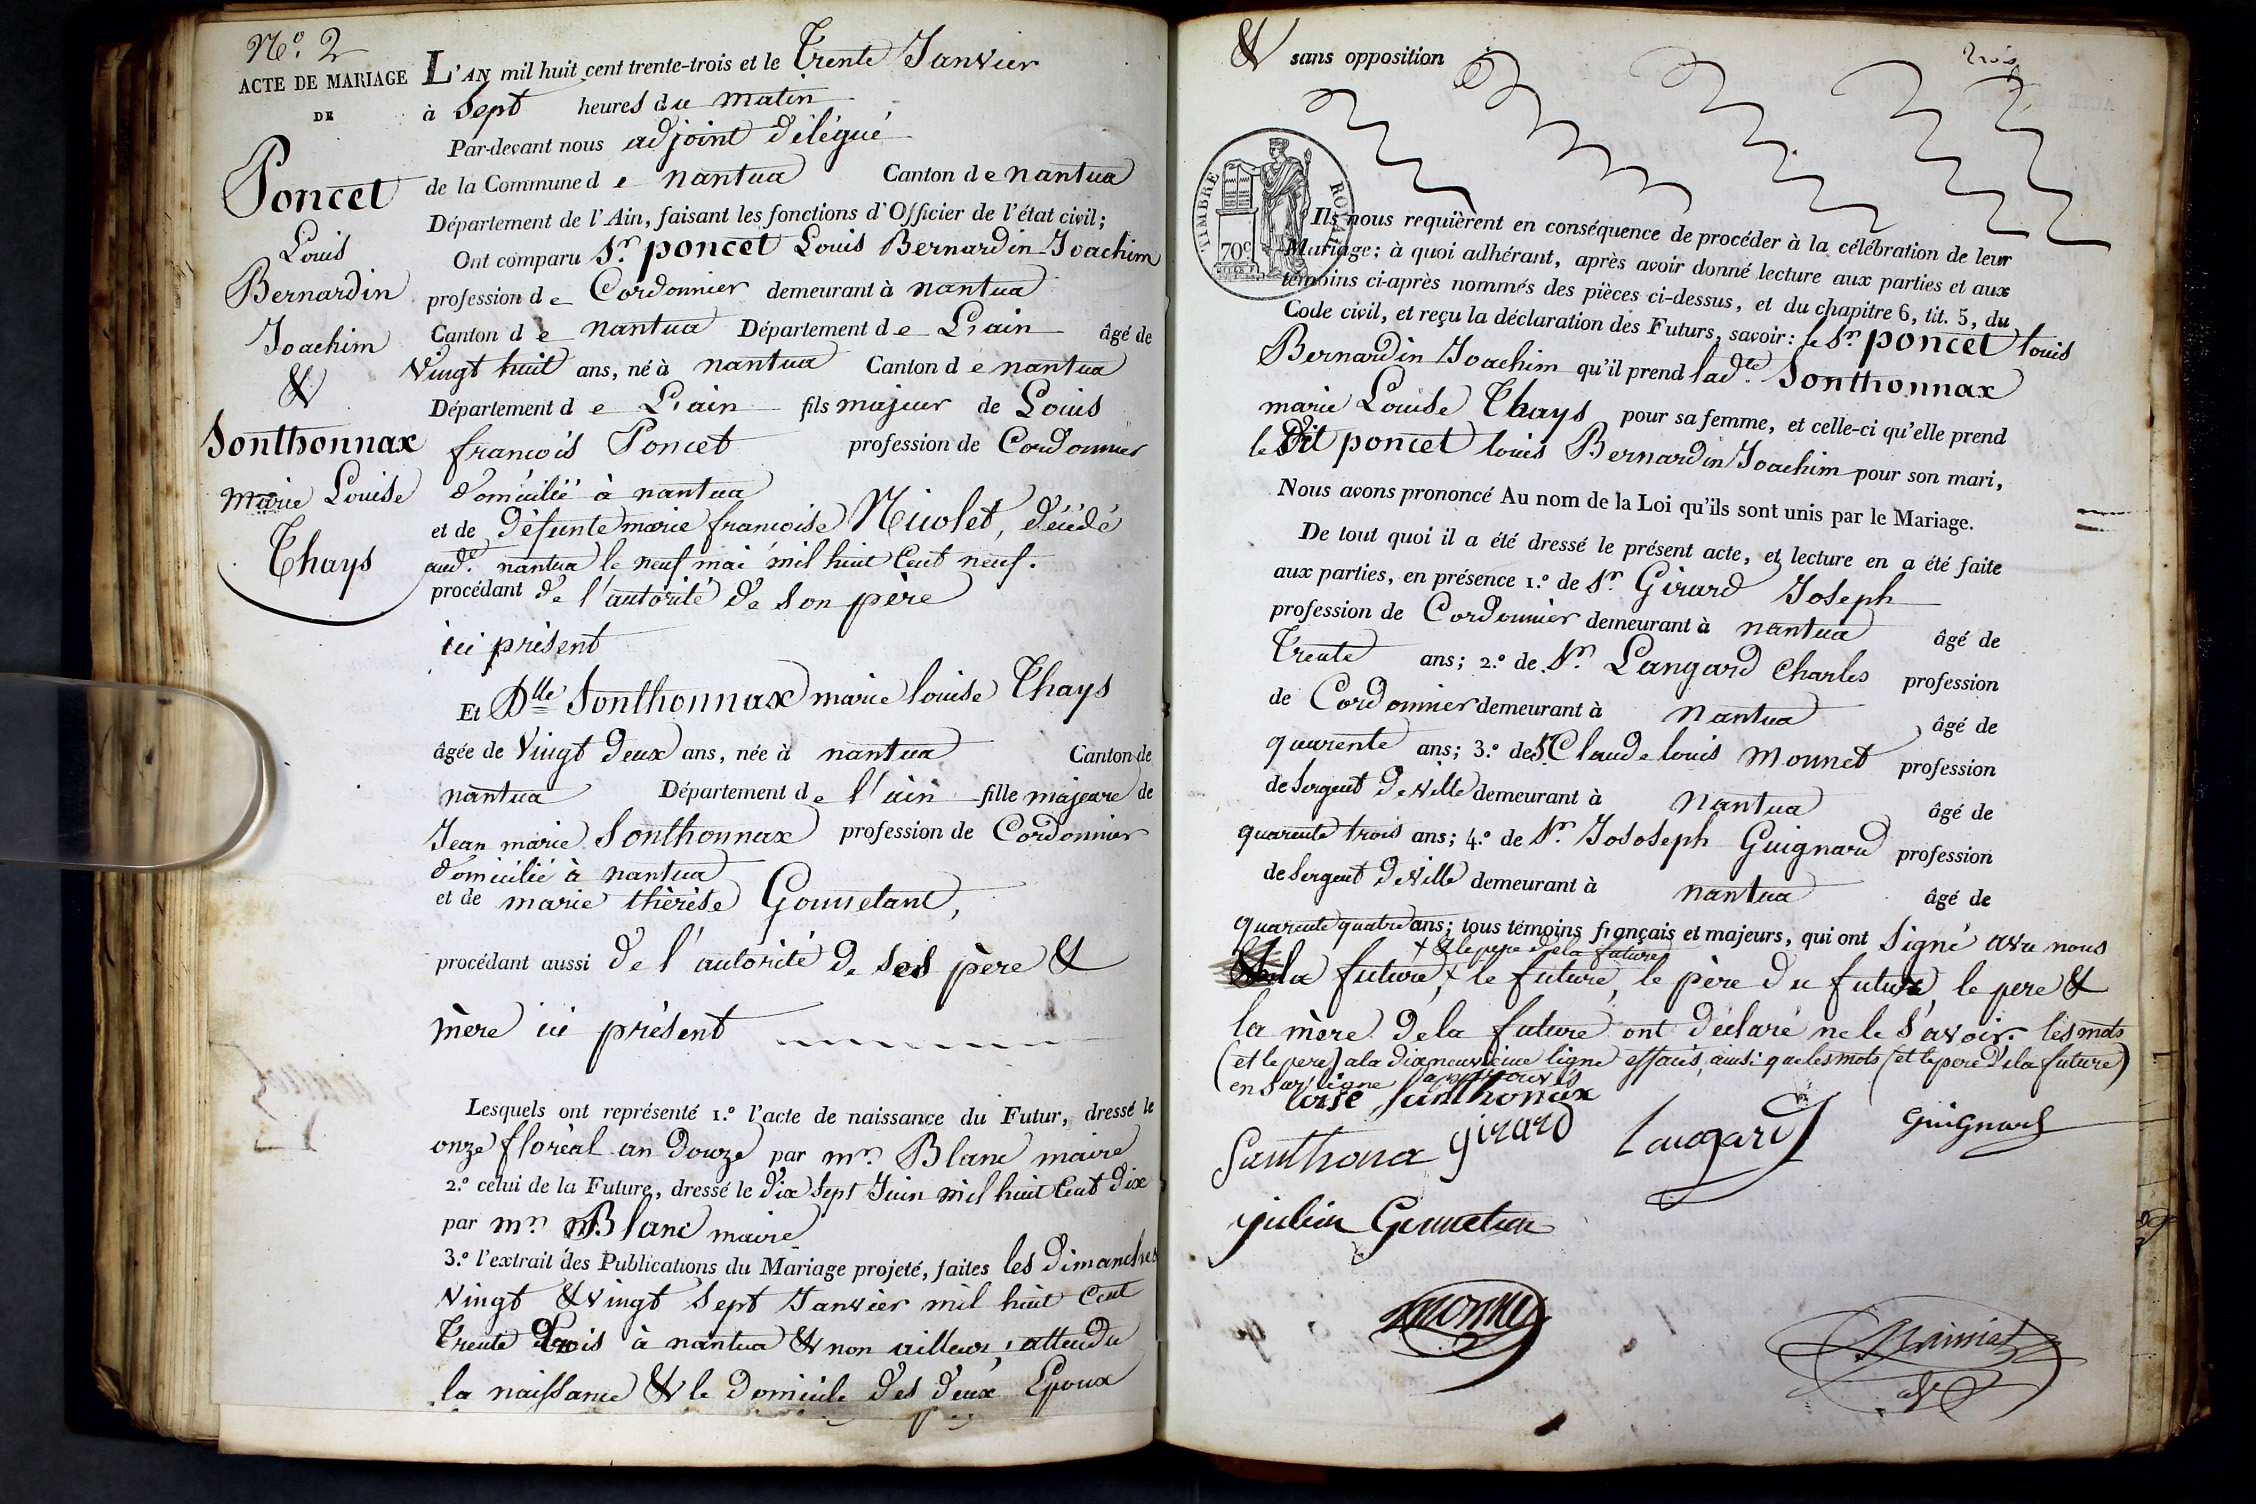 N.º 2
ACTE DE MARIAGE
DE
Poncet
Louis
Bernardin
Joachim
&
Sonthonnax
Marie Louise
Thays
L'AN mil huit cent trente-trois et le Trente Janvier
à Sept heures du matin
Par-devant nous adjoint délégué
de la Commune de nantua Canton de nantua
Département de l'Ain, faisant les fonctions d'Officier de l'état civil;
Ont comparu Sr. poncet Louis Bernardin Joachim
profession de Cordonnier demeurant à nantua
Canton de nantua Département de L'ain âgé de
Vingt huit ans, né à nantua Canton de nantua
Département de L'ain fils majeur de Louis
françois Poncet profession de Cordonnier
domicilié à nantua
et de défunte marie françoise Nicolet, décédé
aud. nantua le neuf mai mil huit Cent neuf.
procédant de l'autorité de son père
ici présent
Et Dlle Sonthonnax marie louise Thays
âgée de Vingt deux ans, née à nantua Canton de
nantua Département de l'ain fille majeure de
Jean marie Sonthonnax profession de Cordonnier
domicilié à nantua
et de marie thérèse Gounetant,
procédant aussi de l'autorité de ses père &
mère ici présent
Lesquels ont représenté 1.º l'acte de naissance du Futur, dressé le
onze floréal an douze par mr. Blanc maire
2.º celui de la Future, dressé le dix Sept Juin mil huit Cent dix
par mr. Blanc maire
3.º l'extrait des Publications du Mariage projeté, faites les dimanches
Vingt & vingt Sept Janvier mil huit Cent
Trente Trois à nantua & non ailleurs, attendu
la naissance & le domicile des deux Epoux
& sans opposition
Trois
TIMBRE ROYAL
70c
Ils nous requièrent en conséquence de procéder à la célébration de leur
Mariage; à quoi adhérant, après avoir donné lecture aux parties et aux
témoins ci-après nommés des pièces ci-dessus, et du chapitre 6, tit. 5, du
Code civil, et reçu la déclaration des Futurs, savoir: le Sr. poncet louis
Bernardin Joachim qu'il prend lad.te Sonthonnax
marie Louise Thays pour sa femme, et celle-ci qu'elle prend
le dit poncet louis Bernardin Joachim pour son mari,
Nous avons prononcé Au nom de la Loi qu'ils sont unis par le Mariage.
De tout quoi il a été dressé le présent acte, et lecture en a été faite
aux parties, en présence 1.º de Sr. Girard Joseph
profession de Cordonnier demeurant à nantua âgé de
Trente ans; 2.º de Sr. Langard Charles profession
de Cordonnier demeurant à nantua âgé de
quarente ans; 3.º de Sr Claude louis mounet profession
de Sergent de Ville demeurant à nantua âgé de
quarente trois ans; 4.º de Sr. Jososeph Guignard profession
de Sergent de Ville demeurant à nantua âgé de
quarente quatre ans; tous témoins français et majeurs, qui ont Signé avec nous
+ & le pere de la future
la future, + le future, le père du future, le pere &
la mère de la future ont déclaré ne le Savoir. les mots
(et le pere) a la dix neuvieme ligne effacés, ainsi que les mots (et le pere de la future)
en Sur ligne approuvés
loise Santhonax
Santhona Girard Laugard Guignard
julien Gounetan
monnet